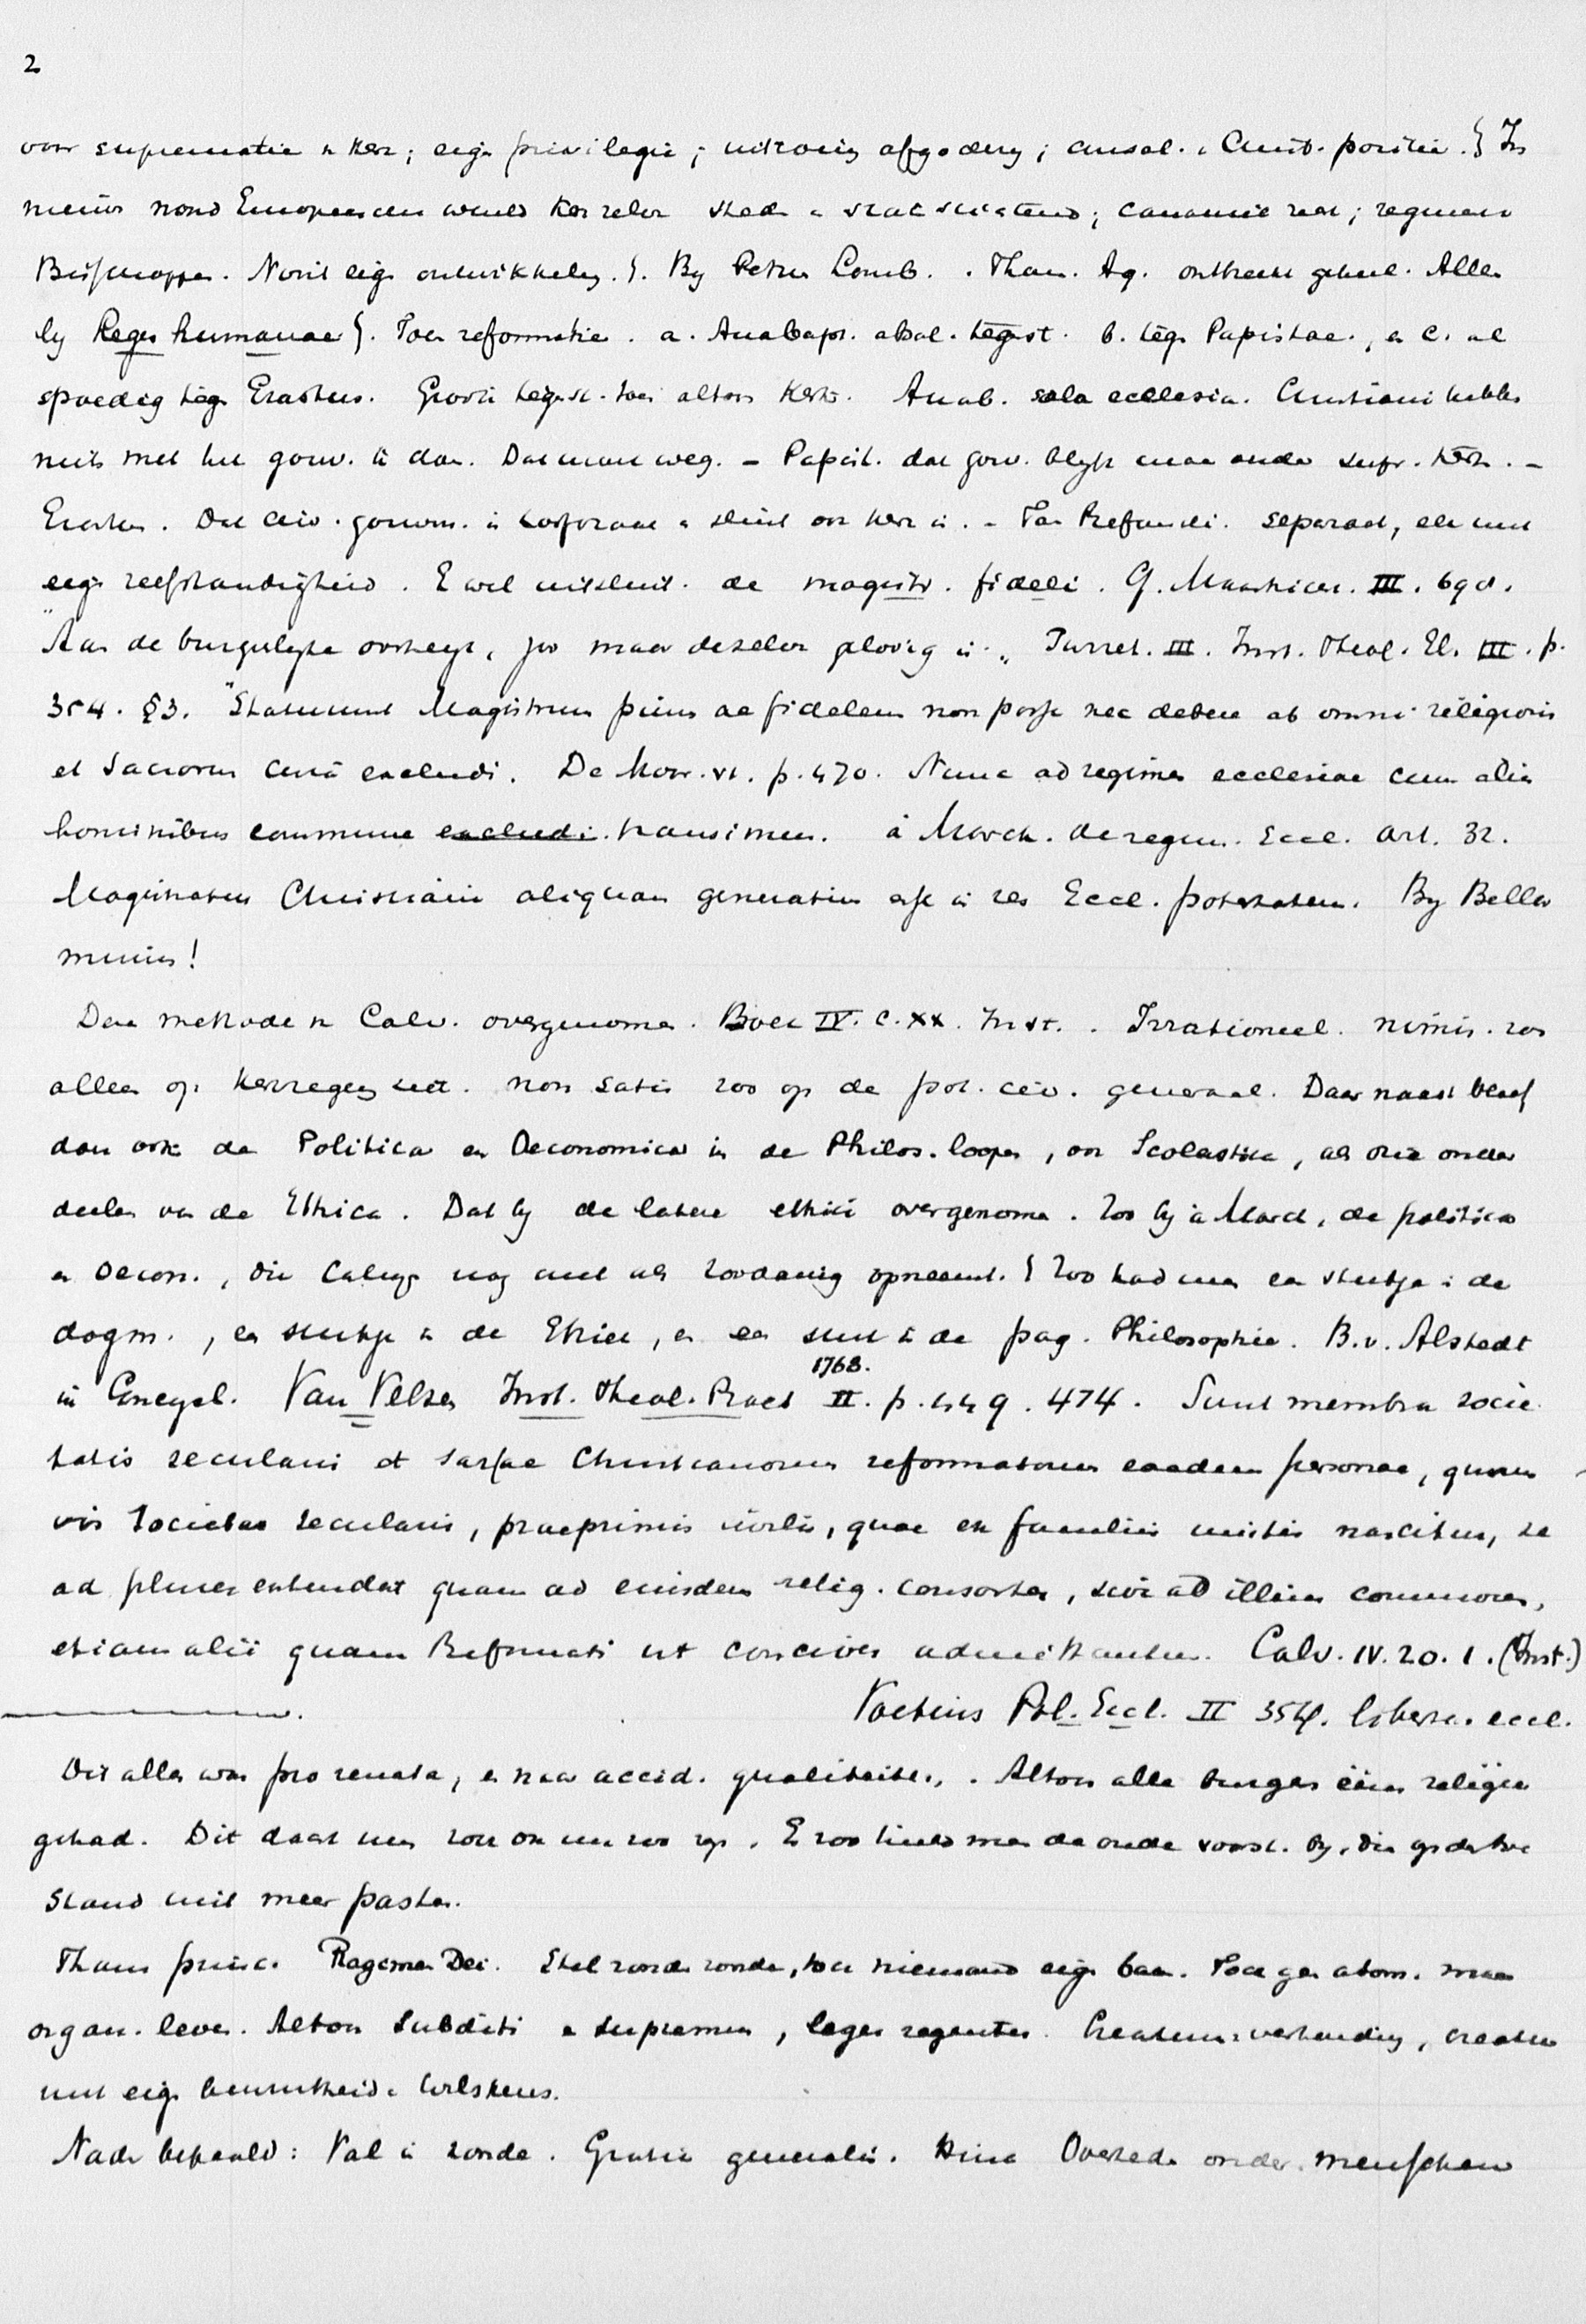 2
voor suprematie v kerk; eigen privilegie; uitroeiing afgodery; consol. Christ. positie. } In
nieuw Noord Europeeschen wereld kerk zelve stad en staat stichtend; canoniek recht; regeerend
Bisschoppen. Nooit eigen ontwikkeling. }. By Petrus Lomb. Thom. Aq. ontbreekt geheel. Alleen
by leges humanae }. Toen reformatie. a. Anabapt. absol. tegenst. b. tegen Papistae., en c. al
spoedig tegen Erastus. Groote tegenst. toen altoos kerk. Anab. sola ecclesia. Christiani hebben
niets met het gouv. te doen. Dat moet weg. – Papist. dat gouv. blyft maar onder supr. kerk. –
Erastus. Dat civ. gouvern. is en sluit ook kerk in. – Toen Reformati. separaat, elk met
eigen zelfstandigheid. E wel uitsluit. de magistr. fideli. G. Mastricht. III. 690.
"Aan de burgerlyke overheyt, zoo maar dezelve geloovig is." Turret. III. Inst. Theol. El. III. p.
354. §3. "Statuunt Magistratum pium ac fidelem non posse nec debere ab omni religionis
et sacrorum cura excludi. De Moor. VI. p. 470. Nunc ad regimen ecclesiae cum aliis
hominibus commune excludi transimus. à Marck. de regim. Eccl. Art. 32.
Magistratus Christiani aliquam generatim esse in res Eccl. potestatem. By Bellar
minus!
Deze methode v Calv. overgenomen. Boek IV. c. XX. Inst. . Irrationeel. nimis. zoo
alleen op kerkregering ziet. non satis zoo op de pol. civ. generaal. Daarnaast bleef
dan ook de Politica en Oeconomica in de Philos. loopen, en Scolastiek, als onder
deelen van de Ethica. Dat by de latere ethici overgenomen. Zoo by à Marck, de politica
en Oecon., die Calvyn nog niet als zoodanig opneemt. } Zoo had men een stukje in de
dogm., een stukje in de Ethiek, en een stuk in de pag. Philosophie. B.v. Alstedt
in Encycl. Van Velzen Inst. Theol. Pract 1768. II. p. 449. 474. Sunt membra socie
tatis secularis et saepe Christianorum reformatorum eaedem personae, quam
vis societas secularis, praeprimis civilis, quae ex familiis multis nascitur, se
ad plures extendat quam ad eiusdem relig. consortes, sive ad illius commores,
etiam alii quam Reformati ut concives admittantur. Calv. IV. 20. 1. (Inst.)
Voetius Pol. Eccl. II 354. libert. eccl.
Dit alles was pro renata, en naar accid. qualiteiten. Altoos alle burgers één religie
gehad. Dit deed men toen ook nu zoo op. E zoo hield men de oude voorst. by, die op de toe
stand niet meer pasten.
Thans princ. Regimen Dei. Stel zonder zonde, toen niemand eigen baas. Toen geen atom. maar
organ. leven. Altoos subditi en supremus, leges regentes. Creatuur verhouding, creatuur
met eigen bewustheid en wilskeus.
Nader bepaald: Val in zonde. Gratia generalis. Hinc Overheden onder menschen